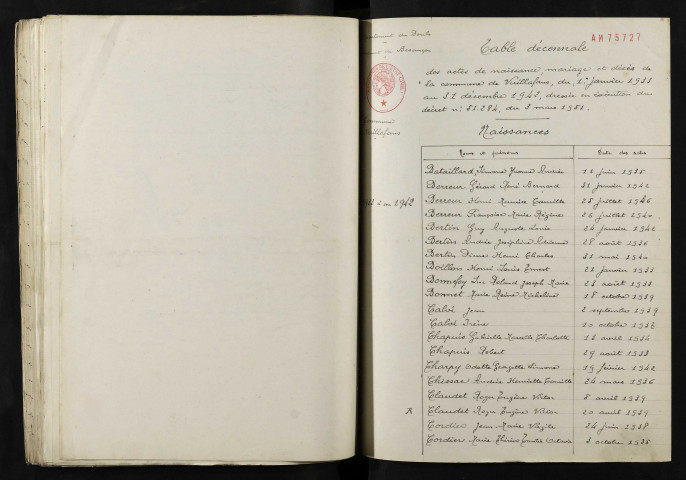 AM 75727
Département du Doubs
de Besançon
Commune
Vuillafans
à au 1942
Table décennale
des actes de naissance mariage et décès de
la commune de Vuillafans, du 1er janvier 1933
au 31 décembre 1942, dressée en exécution du
décret n: 51.284, du 3 mars 1951.
Naissances
Noms et prénoms Date des actes
Bataillard, Simone Yvonne Andrée 11 juin 1935
Berreur Gérard René Bernard 31 janvier 1942
Berreur Henri Maurice Camille 25 juillet 1936
Berreur Françoise Marie Régine 26 juillet 1940
Bertin Guy Auguste Louis 24 janvier 1942
Bertin Andrée Joséphine 28 août 1936
Bertin Henri Charles 31 mai 1940
Boillon Henri Louis Ernest 21 janvier 1933
Bonnefoy Luc Roland Joseph Marie 21 août 1933
Bonnet Marie Reine Madeleine 18 octobre 1939
Calvi Jean 2 septembre 1939
Calvi Irène 10 octobre 1938
Chapuis Gabrielle Marcelle Charlotte 11 avril 1934
Chapuis Robert 29 août 1933
Charpy Odette Georgette Simone 19 février 1942
Andrée Henriette Camille 24 mars 1936
Claudet Roger Eugène Victor 5 avril 1939
R Claudet Roger Eugène Victor 20 avril 1939
Cordier Jean Marie Virgile 24 juin 1938
Cordier Marie Thérèse Octavie 3 octobre 1935